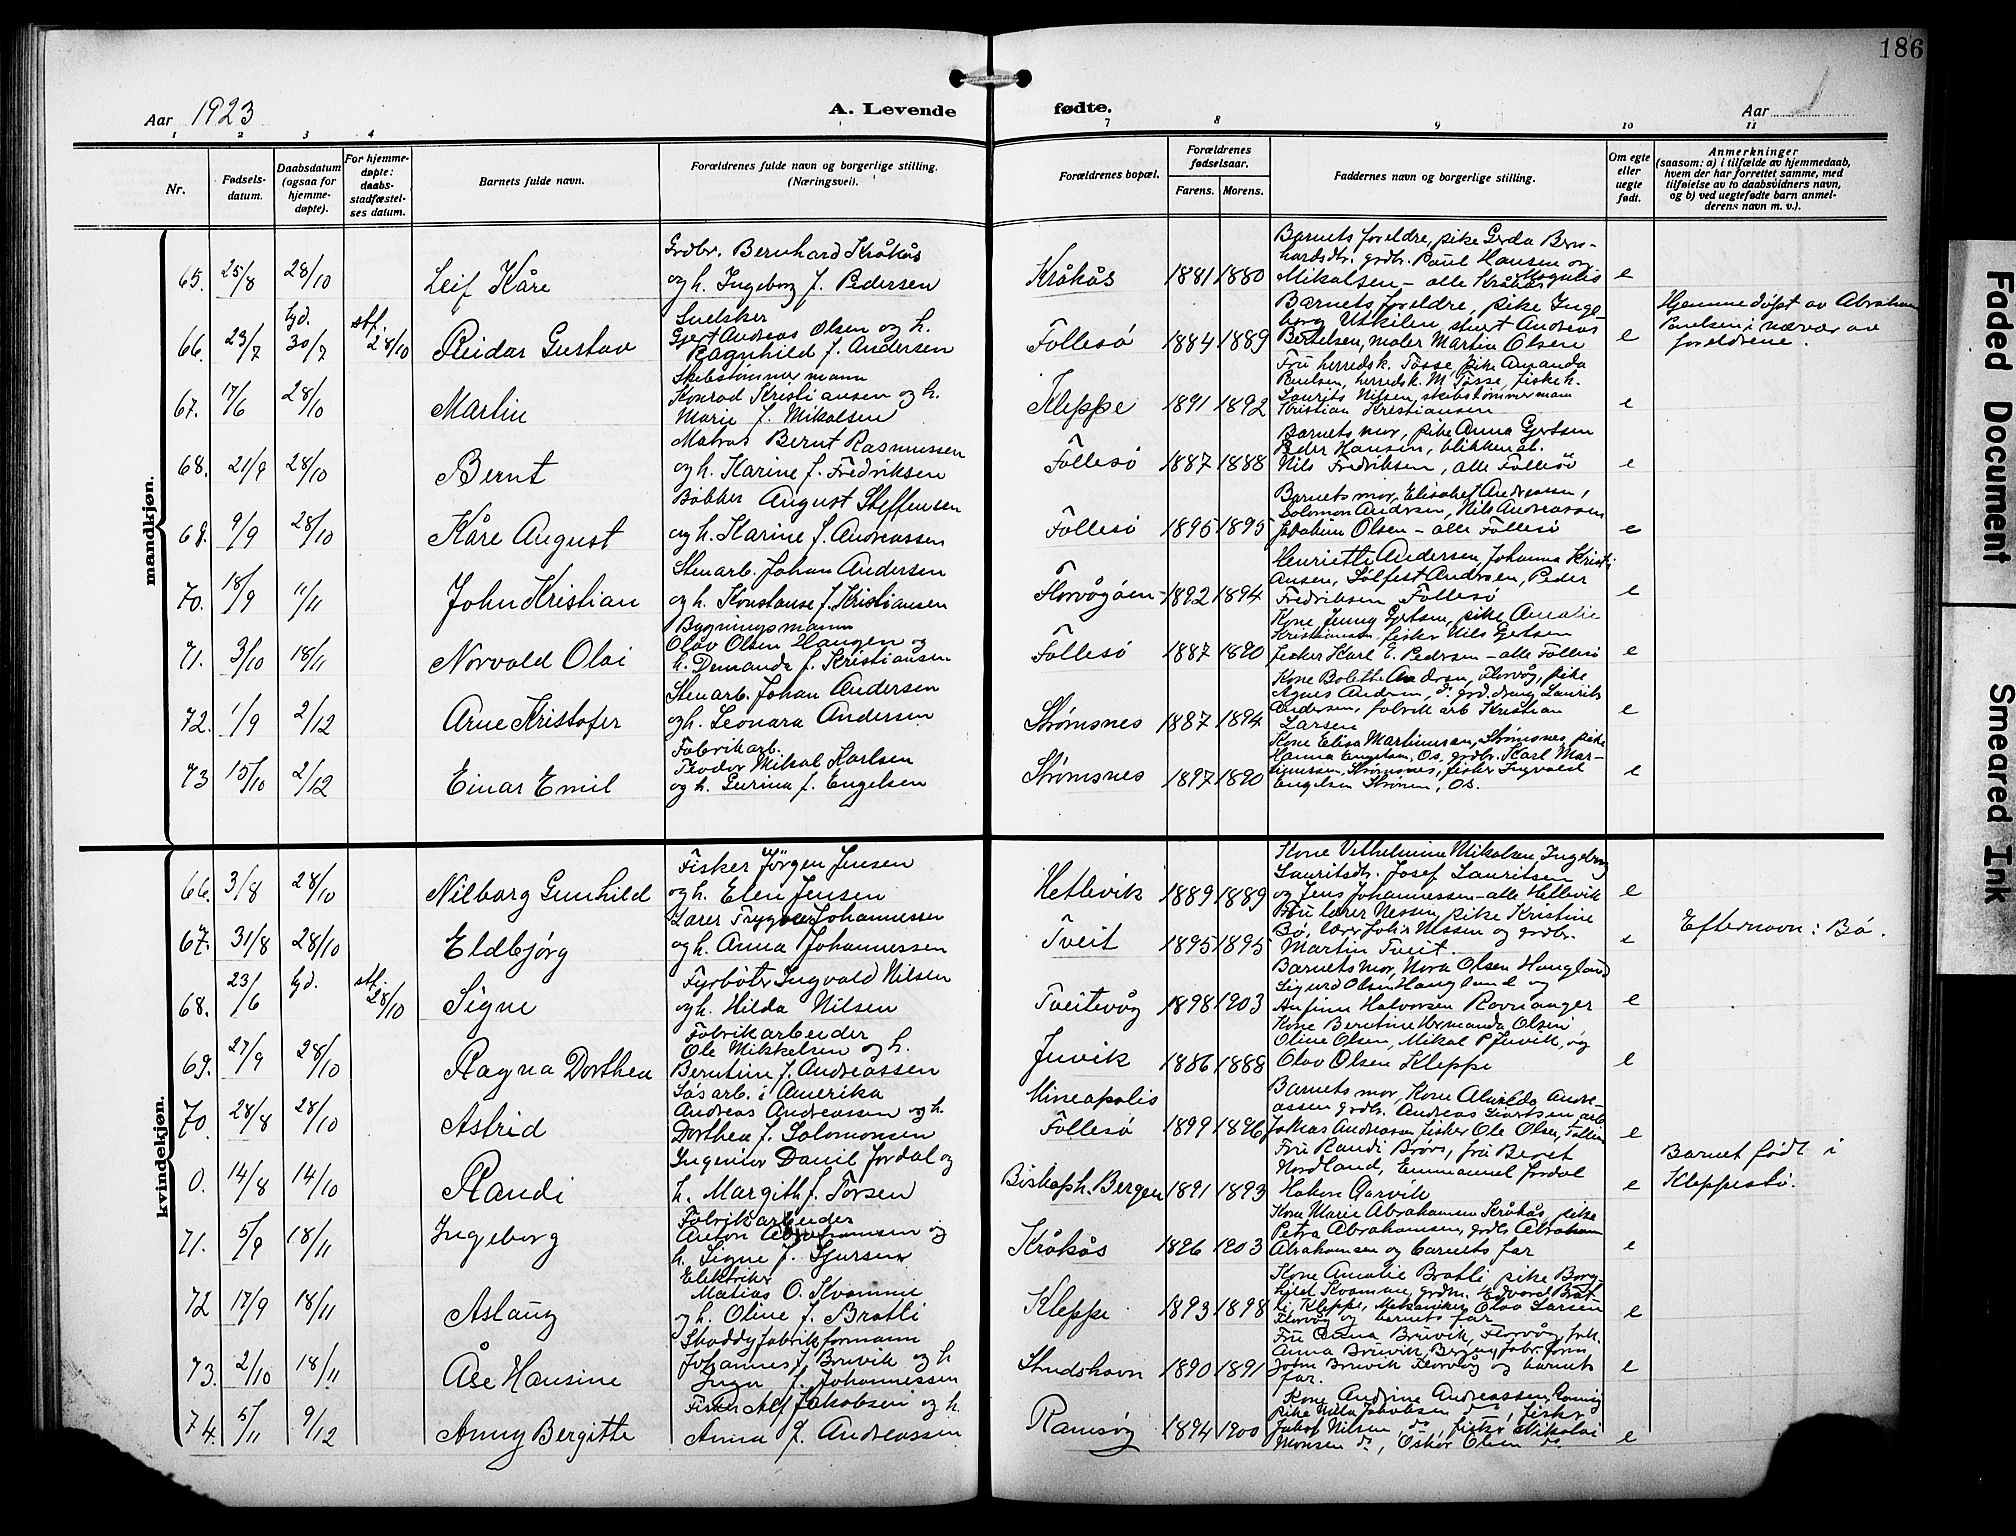 186
Aar 1923
A. Levende
fødte.
Aar
1 2 3 4 7 8 9 10 11
Nr.
Fødsels-
datum.
Daabsdatum
(ogsaa for
hjemme-
døpte).
For hjemme-
døpte:
daabs-
stadfæstel-
ses datum.
Barnets fulde navn.
Forældrenes fulde navn og borgerlige stilling.
(Næringsvei).
Forældrenes bopæl.
Forældrenes
fødselsaar.
Farens. Morens.
Faddernes navn og borgerlige stilling.
Om egte
eller
uegte
født.
Anmerkninger
(saasom: a) i tilfælde av hjemmedaab,
hvem der har forrettet samme, med
tilføielse av to daabsvidners navn,
og b) ved uegtefødte barn anmel-
derens navn m. v.).
mandkjøn.
65. 25/8 28/10 Leif Kåre
Grdbr. Bernhard Kråkås
og h. Ingeborg f. Pedersen
Kråkås 1881 1880
Barnets foreldre, pike Gerda Bern-
hardsdtr. grdbr. Paul Hansen og
Mikalsen - alle Kråkås
e
66. 23/7 hjd. 30/7 stf. 28/10 Reidar Gustav
Snelsker
Gjert Andreas Olsen og h.
Ragnhild f. Andersen
Follesø 1884 1889
Barnets foreldre, pike Inge-
borg Utkilen, stuert Andreas
Bertelsen, maler Martin Olsen
e
Hjemmedøpt av Abraham
Paulsen i nærvær av
foreldrene.
67. 17/6 28/10 Martin
Skibstømmermann
Konrad Kristiansen og h.
Marie f. Mikalsen
Kleppe 1891 1892
Fru herredsk. Tøsse, pike Amanda
Paulsen, herredsk. M Tøsse, fiskeh.
Laurits Nilsen, skibstømmermann
Kristian Kristiansen
e
68. 21/9 28/10 Bernt
Matros Bernt Rasmussen
og h. Karine f. Fredriksen
Follesø 1887 1888
Barnets mor, pike Anna Gjertsen
Peder Hansen, blikkensl.
Nils Fredriksen, alle Follesø
e
69. 9/9 28/10 Kåre August
Bøkker August Steffensen
og h. Karine f. Andreassen
Follesø 1895 1895
Barnets mor, Elisabet Andreassen,
Solomon Andersen, Nils Andreassen
Joakim Olsen - alle Follesø
e
70. 18/9 11/11 John Kristian
Stenarb. Johan Andersen
og h. Konstanse f. Kristiansen
Florvågøen 1892 1894
Henriette Andersen, Johanna Kristi
ansen, Sølfest Andersen, Peder
Fredriksen Follesø
e
71. 3/10 18/11 Norvald Olai
Bygningsmann
Olav Olsen Haugen og
h. Demanda f. Kristiansen
Follesø 1887 1890
Kone Jenny Gjertsen, pike Amalie
Kristiansen, fisker Nils Gjertsen
fisker Karl E. Pedersen - alle Follesø
e
72. 1/9 2/12 Arne Kristofer
Stenarb. Johan Andersen
og h. Leonara Andersen
Strømsnes 1887 1894
Kone Bolette Andersen, Florvåg, pike
Agnes Andersen, do. grd.dreng Laurits
Andersen, fabrikarb Kristian
Larsen
e
73 15/10 2/12 Einar Emil
Fabrikarb.
Teodor Mikal Karlsen
og h. Gurina f. Engelsen
Strømsnes 1897 1890
Kone Elisa Martinussen, Strømsnes, pike
Hanna Engelsen, Os, grdbr. Karl Mar-
tinussen, Strømsnes, fisker Ingvald
Engelsen Strønen, Os.
e
kvindekjøn.
66. 3/8 28/10 Nilborg Gunhild
Fisker Jörgen Jensen
og h. Elen Jensen
Hetlevik 1889 1889
Kone Vilhelmine Mikalsen, Ingeborg
Lauritsdtr. Josef Lauritsen
og Jens Johannessen - alle Hetlevik
e
67. 31/8 28/10 Eldbjørg
Lærer Trygve Johannessen
og h. Anna Johannessen
Tveit 1895 1895
Fru lærer Nessen, pike Kristine
Bø, lærer Johs Nessen og grdbr.
Martin Tveit.
e
Efternavn: Bø.
68. 23/6 hjd. stf. 28/10 Signe
Fyrbøter Ingvald Nilsen
og h. Hilda Nilsen
Tveitevåg 1898 1903
Barnets mor, Nora Olsen Haugland
Sigurd Olsen Haugland og
Anfinn Halvorsen Ravnanger
e
69. 27/9 28/10 Ragna Dorthea
Fabrikarbeider
Ole Mikkelsen og h.
Berntine f. Andreassen
Juvik 1886 1888
Kone Berntine Hermanda Olsen,
Oline Olsen, Mikal P Juvik, og
Olav Olsen Kleppe
e
70. 28/8 28/10 Astrid
Løsarb. i Amerika
Andreas Andreassen og h.
Dorthea f. Solomonsen
Mineapolis
Follesø 1899 1896
Barnets mor, Kone Alvilda Andre-
assen grdbr. Andreas Gjertsen arb
Jakias Andreassen fisker Ole Olsen, Follesø
e
0. 14/8 14/10 Randi
Ingeniør Danil Jordal og
h. Margith f. Torsen
Biskopsh. Bergen 1891 1893
Fru Randi Brørs, fru Beret
Nordland, Emmanuel Jordal
Hakon Garvik
e
Barnet født i
Kleppestø.
71. 5/9 18/11 Ingeborg
Fabrikarbeider
Anton Abrahamsen og
h. Signe f. Sjursen
Kråkås 1896 1903
Kone Marie Abrahamsen Kråkås, pike
Petra Abrahamsen, grdb. Abraham
Abrahamsen og barnets far
e
72 17/9 18/11 Aslaug
Elektriker
Matias O. Kvamme
og h. Oline f. Bratli
Kleppe 1893 1898
Kone Amalie Bratli, pike Borg-
hild Kvamme, grdm. Edvard Brat-
li Kleppe, Mekaniker Olav Larsen
Florvåg og barnets far
e
73. 2/10 18/11 Åse Hansine
Shoddyfabrikformann
Johannes J. Bruvik og h
Inga f. Johannessen
Strudshavn 1890 1891
Fru Anna Bruvik, Florvåg, frk.
Anna Bruvik, Bergen, fabr.form
John Bruvik Florvåg og barnets
far.
e
74. 5/11 9/12 Anny Bergitte
Fisker Alf Jakobsen og h.
Anna f. Andreassen
Ramsøy 1894 1900
Kone Andrine Andreassen, Ramsøy
pike Nilla Jakobsen do, fisker
Jakob Nilsen do, fisker Nikolai
Monsen do, Oskar Olsen do.
e
Faded Document
Smeared Ink